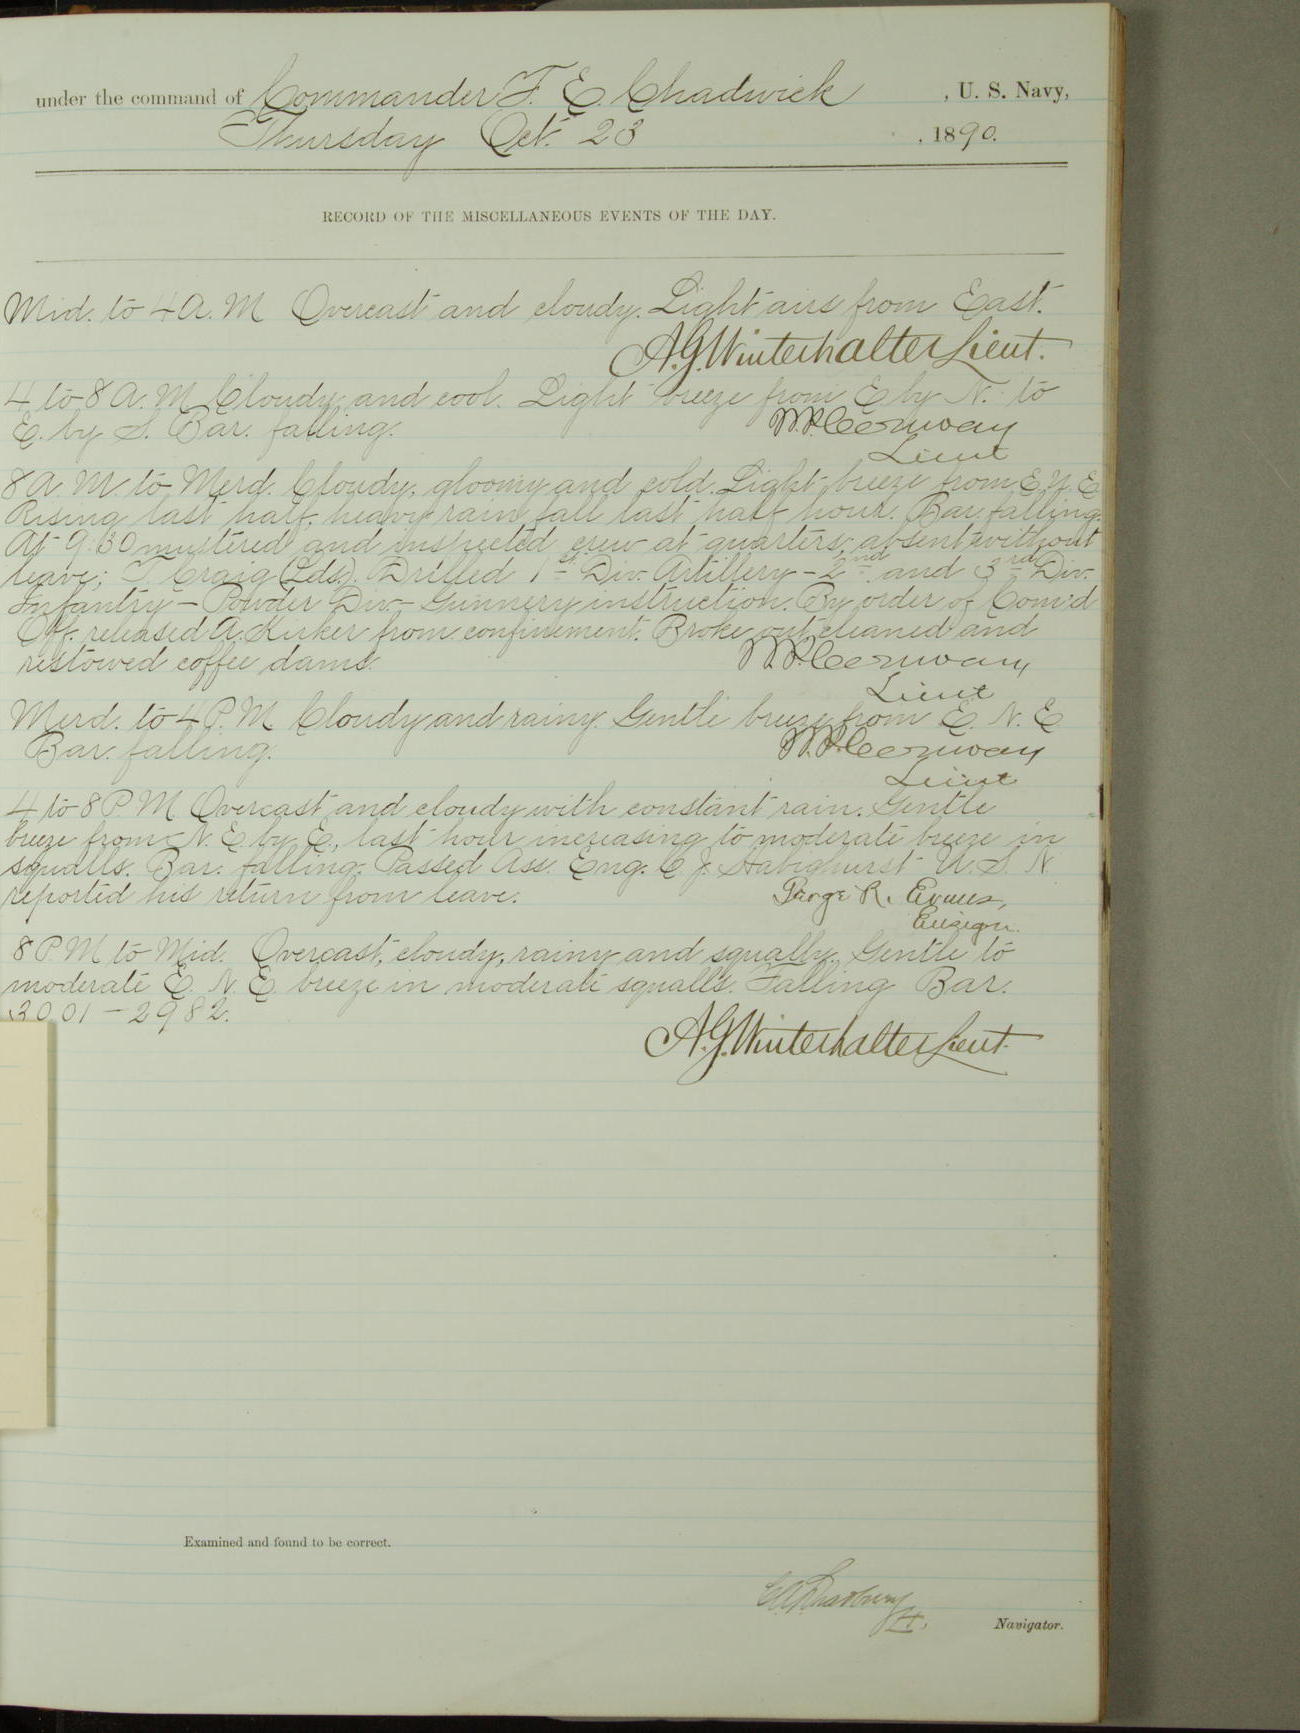 under the command of Commander F. E. Chadwick, U. S. Navy,
Thursday Oct. 23, 1890.
RECORD OF THE MISCELLANEOUS EVENTS OF THE DAY.
Mid. to 4 A. M Overcast and cloudy. Light airs from East.
A. G. Winterhalter Lieut.
4 to 8 A. M. Cloudy and cool. Light breeze from E by N. to
E. by S. Bar. falling.
W. P. Conway
Lieut
8 A. M. to Merd. Cloudy, gloomy and cold. Light breeze from E. N. E
Rising last half, heavy rain fall last half hour. Bar falling.
At 9:30 mustered and inspected crew at quarters, absent without
leave; T. Craig (Lds.). Drilled 1st Div. Artillery - 2nd and 3rd Div.
Infantry - Powder Div - Gunnery instruction. By order of Com'd
Off. released A. Kirker from confinement. Broke out, cleaned and
restowed coffee dams.
W. P. Conway
Lieut
Merd. to 4 P. M Cloudy and rainy. Gentle breeze from E. N. E
Bar. falling.
W. P. Conway
Lieut
4 to 8 P. M Overcast and cloudy with constant rain. Gentle
breeze from N. E by E., last hour increasing to moderate breeze in
squalls. Bar. falling. Passed Ass. Eng. C. J. Habighurst U. S. N
reported his return from leave.
George R. Evans,
Ensign.
8 P M to Mid. Overcast, cloudy, rainy and squally. Gentle to
moderate E. N. E breeze in moderate squalls. Falling Bar.
30 01 - 29 82.
A. G. Winterhalter Lieut.
Examined and found to be correct.
Navigator.